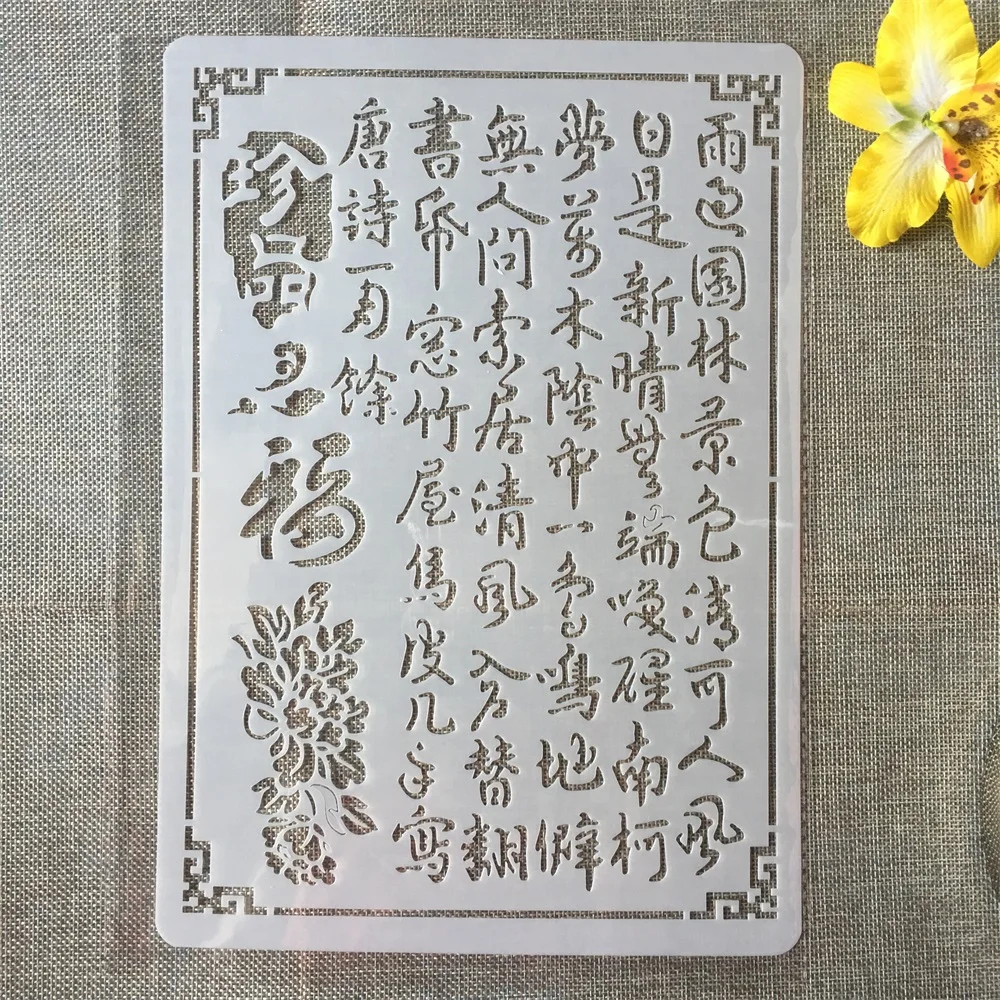 雨過園林景色清可人風
日是新晴無端喚醒南柯
夢萬木陰中一鳥鳴地僻
無人問索居清風入戶替翻
書紙窓竹屋烏皮几手寫
唐詩一万餘
珍品
忍
福